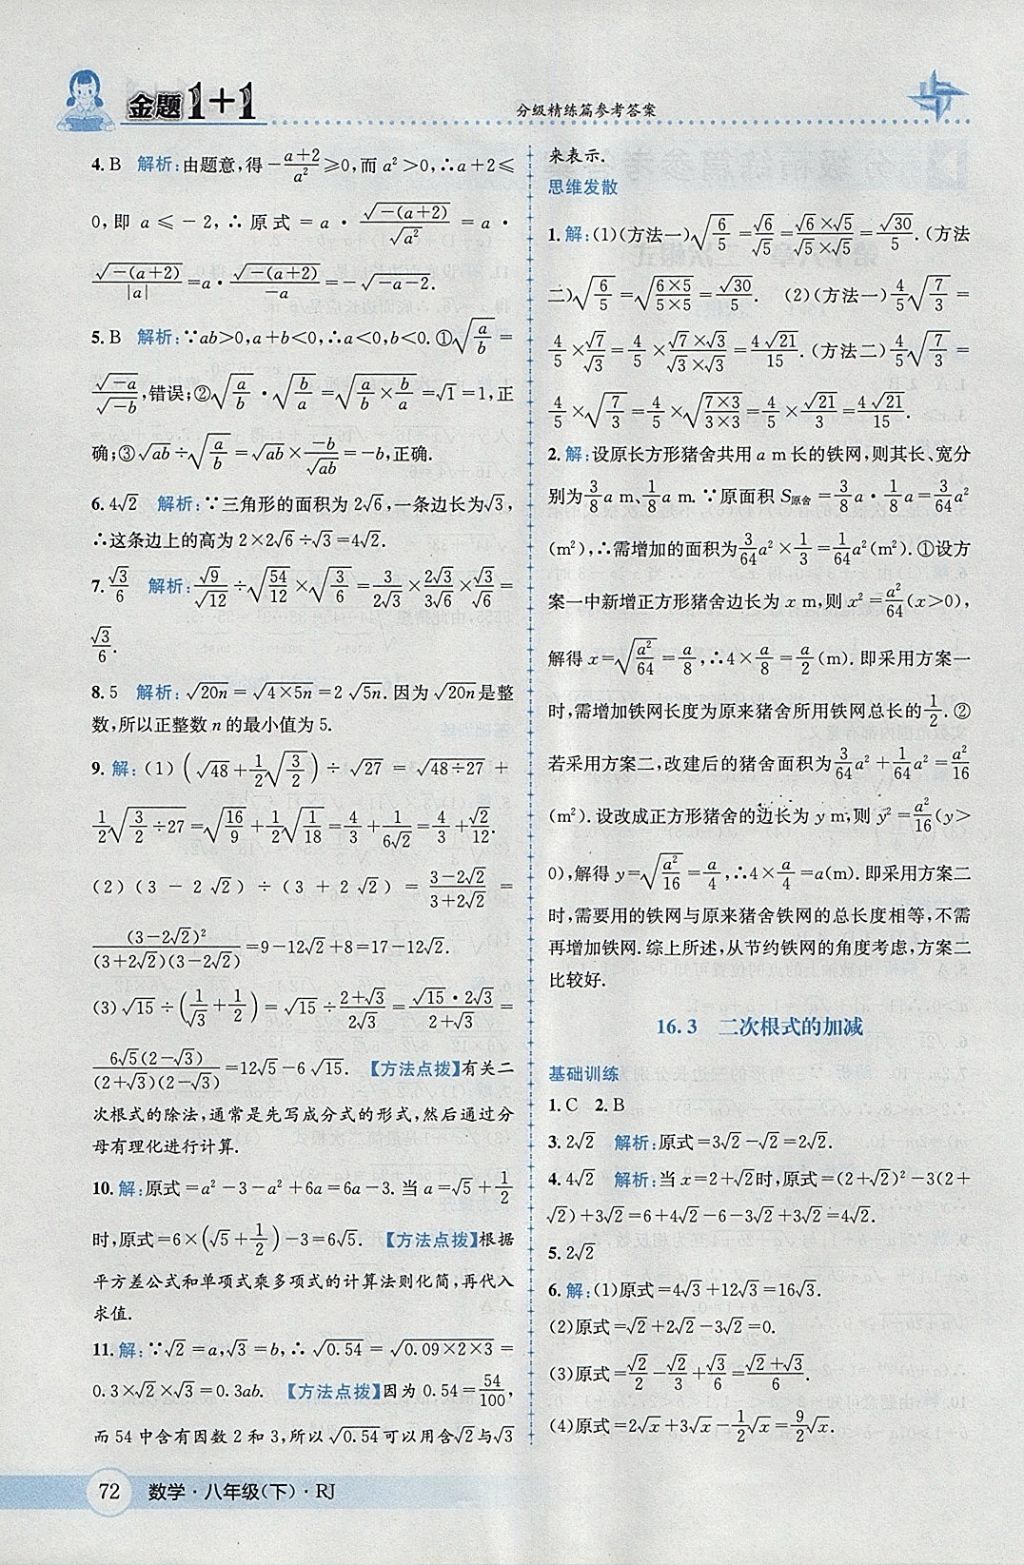 金题1+1
分级精练篇参考答案
4. B 解析:由题意,得-\frac{a+2}{a^2}≥0,而 a^2>0,∴a+2≤
0,即 a≤-2,∴原式=a·\frac{\sqrt{-(a+2)}}{\sqrt{a^2}}=a·
\frac{\sqrt{-(a+2)}}{|a|}=a·\frac{\sqrt{-(a+2)}}{-a}=-\sqrt{-a-2}.
5. B 解析:∵ab>0,a+b<0,∴a<0,b<0.①\sqrt{\frac{a}{b}}=
\frac{\sqrt{-a}}{\sqrt{-b}},错误;②\sqrt{\frac{a}{b}}·\sqrt{\frac{b}{a}}=\sqrt{\frac{a}{b}×\frac{b}{a}}=\sqrt{1}=1,正
确;③\sqrt{ab}÷\sqrt{\frac{a}{b}}=\sqrt{ab}×\frac{-b}{\sqrt{ab}}=-b,正确.
6. 4\sqrt{2} 解析:∵三角形的面积为 2\sqrt{6},一条边长为\sqrt{3},
∴这条边上的高为 2×2\sqrt{6}÷\sqrt{3}=4\sqrt{2}.
7. \frac{\sqrt{3}}{6} 解析:\frac{\sqrt{9}}{\sqrt{12}}÷\sqrt{\frac{54}{12}}×\sqrt{\frac{3}{6}}=\frac{3}{2\sqrt{3}}×\frac{2\sqrt{3}}{3\sqrt{6}}×\frac{\sqrt{3}}{\sqrt{6}}=
\frac{\sqrt{3}}{6}.
8. 5 解析:\sqrt{20n}=\sqrt{4×5n}=2\sqrt{5n}.因为\sqrt{20n}是整
数,所以正整数 n 的最小值为 5.
9. 解:(1)(\sqrt{48}+\frac{1}{2}\sqrt{\frac{3}{2}})÷\sqrt{27}=\sqrt{48÷27}+
\frac{1}{2}\sqrt{\frac{3}{2}÷27}=\sqrt{\frac{16}{9}}+\frac{1}{2}\sqrt{\frac{1}{18}}=\frac{4}{3}+\frac{1}{6\sqrt{2}}=\frac{4}{3}+\frac{\sqrt{2}}{12}.
(2)(3-2\sqrt{2})÷(3+2\sqrt{2})=\frac{3-2\sqrt{2}}{3+2\sqrt{2}}=
\frac{(3-2\sqrt{2})^2}{(3+2\sqrt{2})(3-2\sqrt{2})}=9-12\sqrt{2}+8=17-12\sqrt{2}.
(3)\sqrt{15}÷(\frac{1}{\sqrt{3}}+\frac{1}{2})=\sqrt{15}÷\frac{2+\sqrt{3}}{2\sqrt{3}}=\frac{\sqrt{15}·2\sqrt{3}}{2+\sqrt{3}}=
\frac{6\sqrt{5}(2-\sqrt{3})}{(2+\sqrt{3})(2-\sqrt{3})}=12\sqrt{5}-6\sqrt{15}.【方法点拨】有关二
次根式的除法,通常是先写成分式的形式,然后通过分
母有理化进行计算.
10. 解:原式=a^2-3-a^2+6a=6a-3.当 a=\sqrt{5}+\frac{1}{2}
时,原式=6×(\sqrt{5}+\frac{1}{2})-3=6\sqrt{5}.【方法点拨】根据
平方差公式和单项式乘多项式的计算法则化简,再代入
求值.
11. 解:∵\sqrt{2}=a,\sqrt{3}=b,∴\sqrt{0.54}=\sqrt{0.09×2×3}=
0.3×\sqrt{2}×\sqrt{3}=0.3ab.【方法点拨】因为 0.54=\frac{54}{100},
而 54 中含有因数 2 和 3,所以\sqrt{0.54}可以用含\sqrt{2}与\sqrt{3}
来表示.
思维发散
1. 解:(1)(方法一)\sqrt{\frac{6}{5}}=\frac{\sqrt{6}}{\sqrt{5}}=\frac{\sqrt{6}×\sqrt{5}}{\sqrt{5}×\sqrt{5}}=\frac{\sqrt{30}}{5}.(方法
二)\sqrt{\frac{6}{5}}=\sqrt{\frac{6×5}{5×5}}=\frac{\sqrt{30}}{5}. (2)(方法一)\frac{4}{5}\sqrt{\frac{7}{3}}=
\frac{4}{5}×\frac{\sqrt{7}}{\sqrt{3}}=\frac{4}{5}×\frac{\sqrt{7}×\sqrt{3}}{\sqrt{3}×\sqrt{3}}=\frac{4\sqrt{21}}{15}.(方法二)\frac{4}{5}\sqrt{\frac{7}{3}}=
\frac{4}{5}×\sqrt{\frac{7}{3}}=\frac{4}{5}×\sqrt{\frac{7×3}{3×3}}=\frac{4}{5}×\frac{\sqrt{21}}{3}=\frac{4\sqrt{21}}{15}.
2. 解:设原长方形猪舍共用 a m 长的铁网,则其长、宽分
别为\frac{3}{8}a m、\frac{1}{8}a m.∵原面积 S原舍=\frac{3}{8}a·\frac{1}{8}a=\frac{3}{64}a^2
(m^2),∴需增加的面积为\frac{3}{64}a^2×\frac{1}{3}=\frac{1}{64}a^2(m^2).①设方
案一中新增正方形猪舍边长为 x m,则 x^2=\frac{a^2}{64}(x>0),
解得 x=\sqrt{\frac{a^2}{64}}=\frac{a}{8},∴4×\frac{a}{8}=\frac{a}{2}(m).即采用方案一
时,需增加铁网长度为原来猪舍所用铁网总长的\frac{1}{2}.②
若采用方案二,改建后的猪舍面积为\frac{3}{64}a^2+\frac{1}{64}a^2=\frac{a^2}{16}
(m^2).设改成正方形猪舍的边长为 y m,则 y^2=\frac{a^2}{16}(y>
0),解得 y=\sqrt{\frac{a^2}{16}}=\frac{a}{4},∴4×\frac{a}{4}=a(m).即采用方案二
时,需要用的铁网与原来猪舍铁网的总长度相等,不需
再增加铁网.综上所述,从节约铁网的角度考虑,方案二
比较好.
16.3 二次根式的加减
基础训练
1. C 2. B
3. 2\sqrt{2} 解析:原式=3\sqrt{2}-\sqrt{2}=2\sqrt{2}.
4. 4\sqrt{2} 解析:当 x=2+\sqrt{2}时,原式=(2+\sqrt{2})^2-3(2+
\sqrt{2})+3\sqrt{2}=6+4\sqrt{2}-6-3\sqrt{2}+3\sqrt{2}=4\sqrt{2}.
5. 2\sqrt{2}
6. 解:(1)原式=4\sqrt{3}+12\sqrt{3}=16\sqrt{3}.
(2)原式=\sqrt{2}+2\sqrt{2}-3\sqrt{2}=0.
(3)原式=\frac{\sqrt{2}}{2}-\frac{\sqrt{2}}{3}+\frac{\sqrt{3}}{6}=\frac{\sqrt{2}+\sqrt{3}}{6}.
(4)原式=2\sqrt{x}+3\sqrt{x}-\frac{1}{2}\sqrt{x}=\frac{9}{2}\sqrt{x}.
72 数学·八年级(下)·RJ